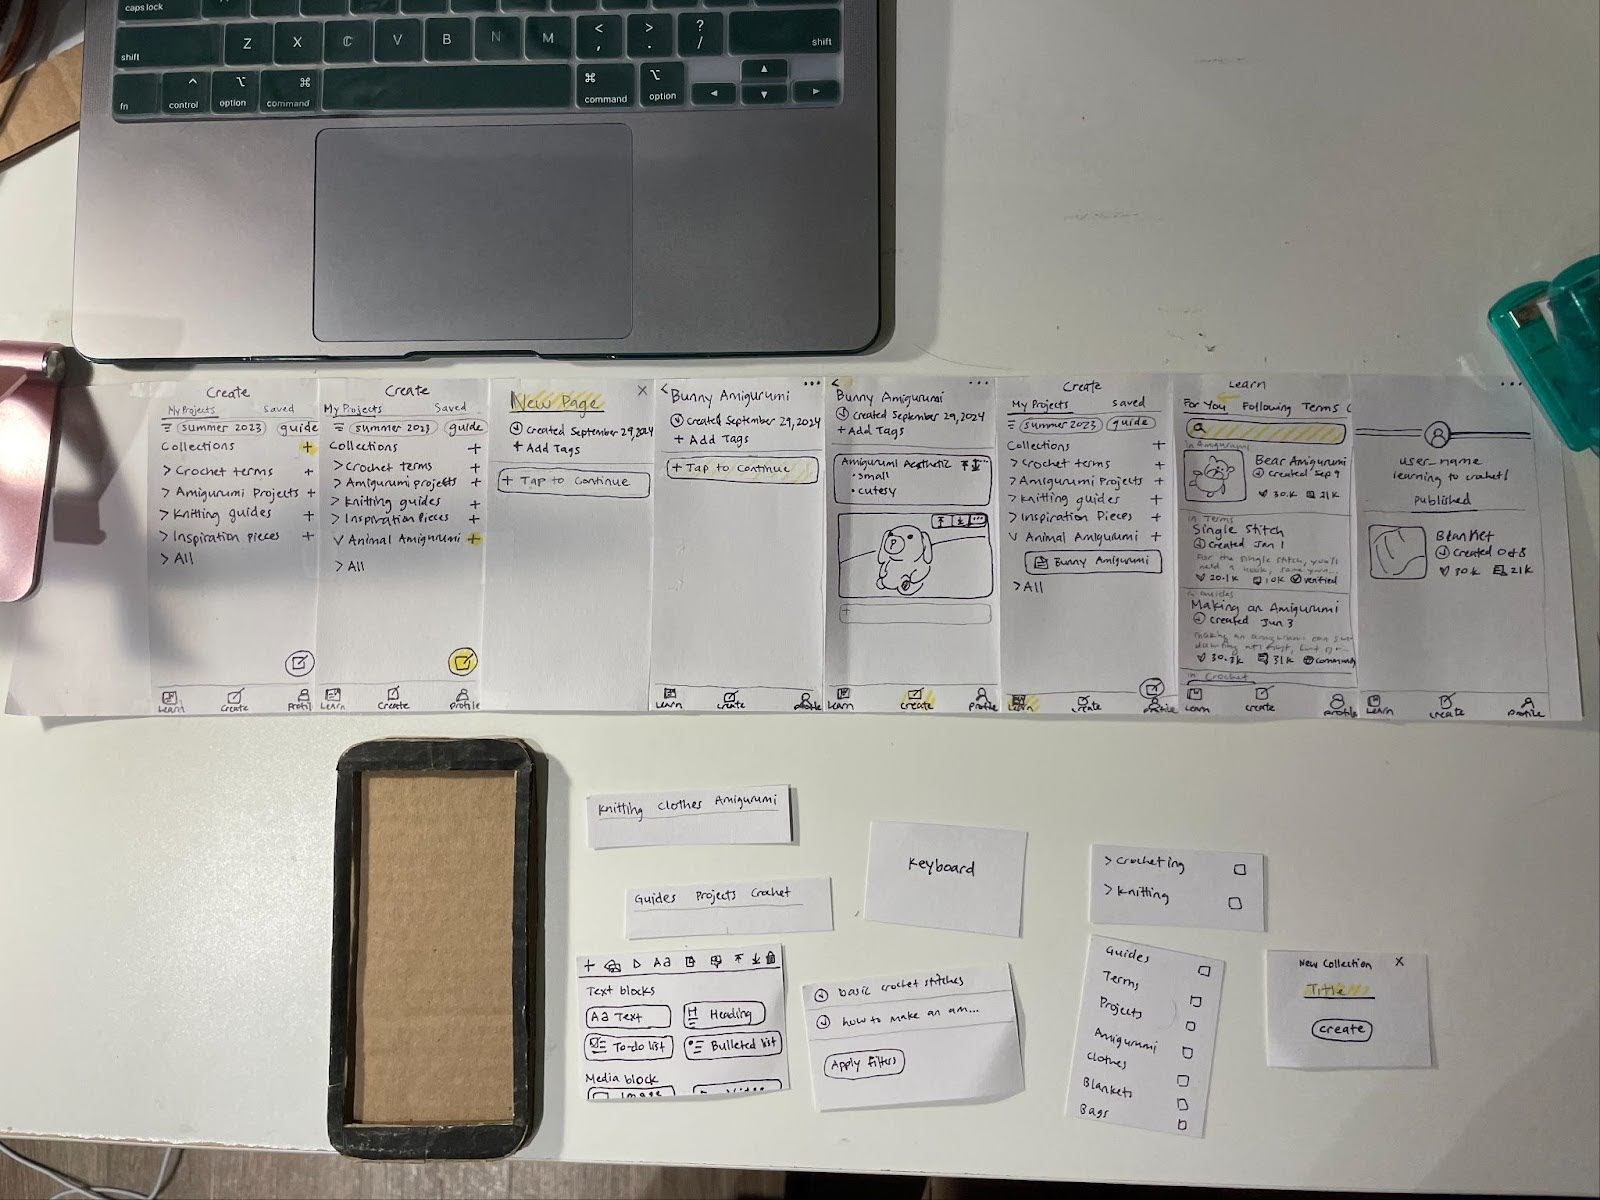 caps lock
shift Z X C V B N M < , > . ? / shift
fn control option command command option
Create
My Projects Saved
summer 2023 guide
Collections +
> Crochet terms +
> Amigurumi Projects +
> Knitting guides +
> Inspiration pieces +
> All
Learn Create Profil
Create
My Projects Saved
summer 2023 guide
Collections +
> Crochet terms +
> Amigurumi projects +
> Knitting guides +
> Inspiration Pieces +
v Animal Amigurumi +
> All
Learn Create profile
New Page X
Created September 29, 2024
+ Add Tags
+ Tap to Continue
< Bunny Amigurumi ...
Created September 29, 2024
+ Add Tags
+ Tap to Continue
Learn Create profile
< ...
Bunny Amigurumi
Created September 29, 2024
+ Add Tags
Amigurumi Aesthetic
• small
• cutesy
+
Learn create profile
Create
My Projects saved
summer 2023 guide
Collections +
> Crochet terms +
> Amigurumi Projects +
> Knitting guides +
> Inspiration Pieces +
v Animal Amigurumi +
Bunny Amigurumi
> All
Learn Create profile
Learn
For You Following Terms C
in Amigurumi
Bear Amigurumi
Created Sep 9
30.K 21K
in Terms
Single Stitch
Created Jan 1
For the single stitch, you'll
need a hook, some
20.1K 10K verified
Guides
Making an Amigurumi
Created Jun 3
making an amigurumi can
daunting at first, but
30.3K 31K
in Crochet
Learn Create profile
...
user_name
learning to crochet!
published
Blanket
Created Oct 8
30K 21K
Learn create profile
Knitting Clothes Amigurumi
Guides Projects Crochet
Keyboard
> crocheting
> knitting
+ Aa
Text blocks
Aa Text H Heading
To-do list Bulleted list
Media block
Image Video
basic crochet stitches
how to make an am...
Apply Filters
Guides
Terms
Projects
Amigurumi
Clothes
Blankets
Bags
New Collection X
Title
create